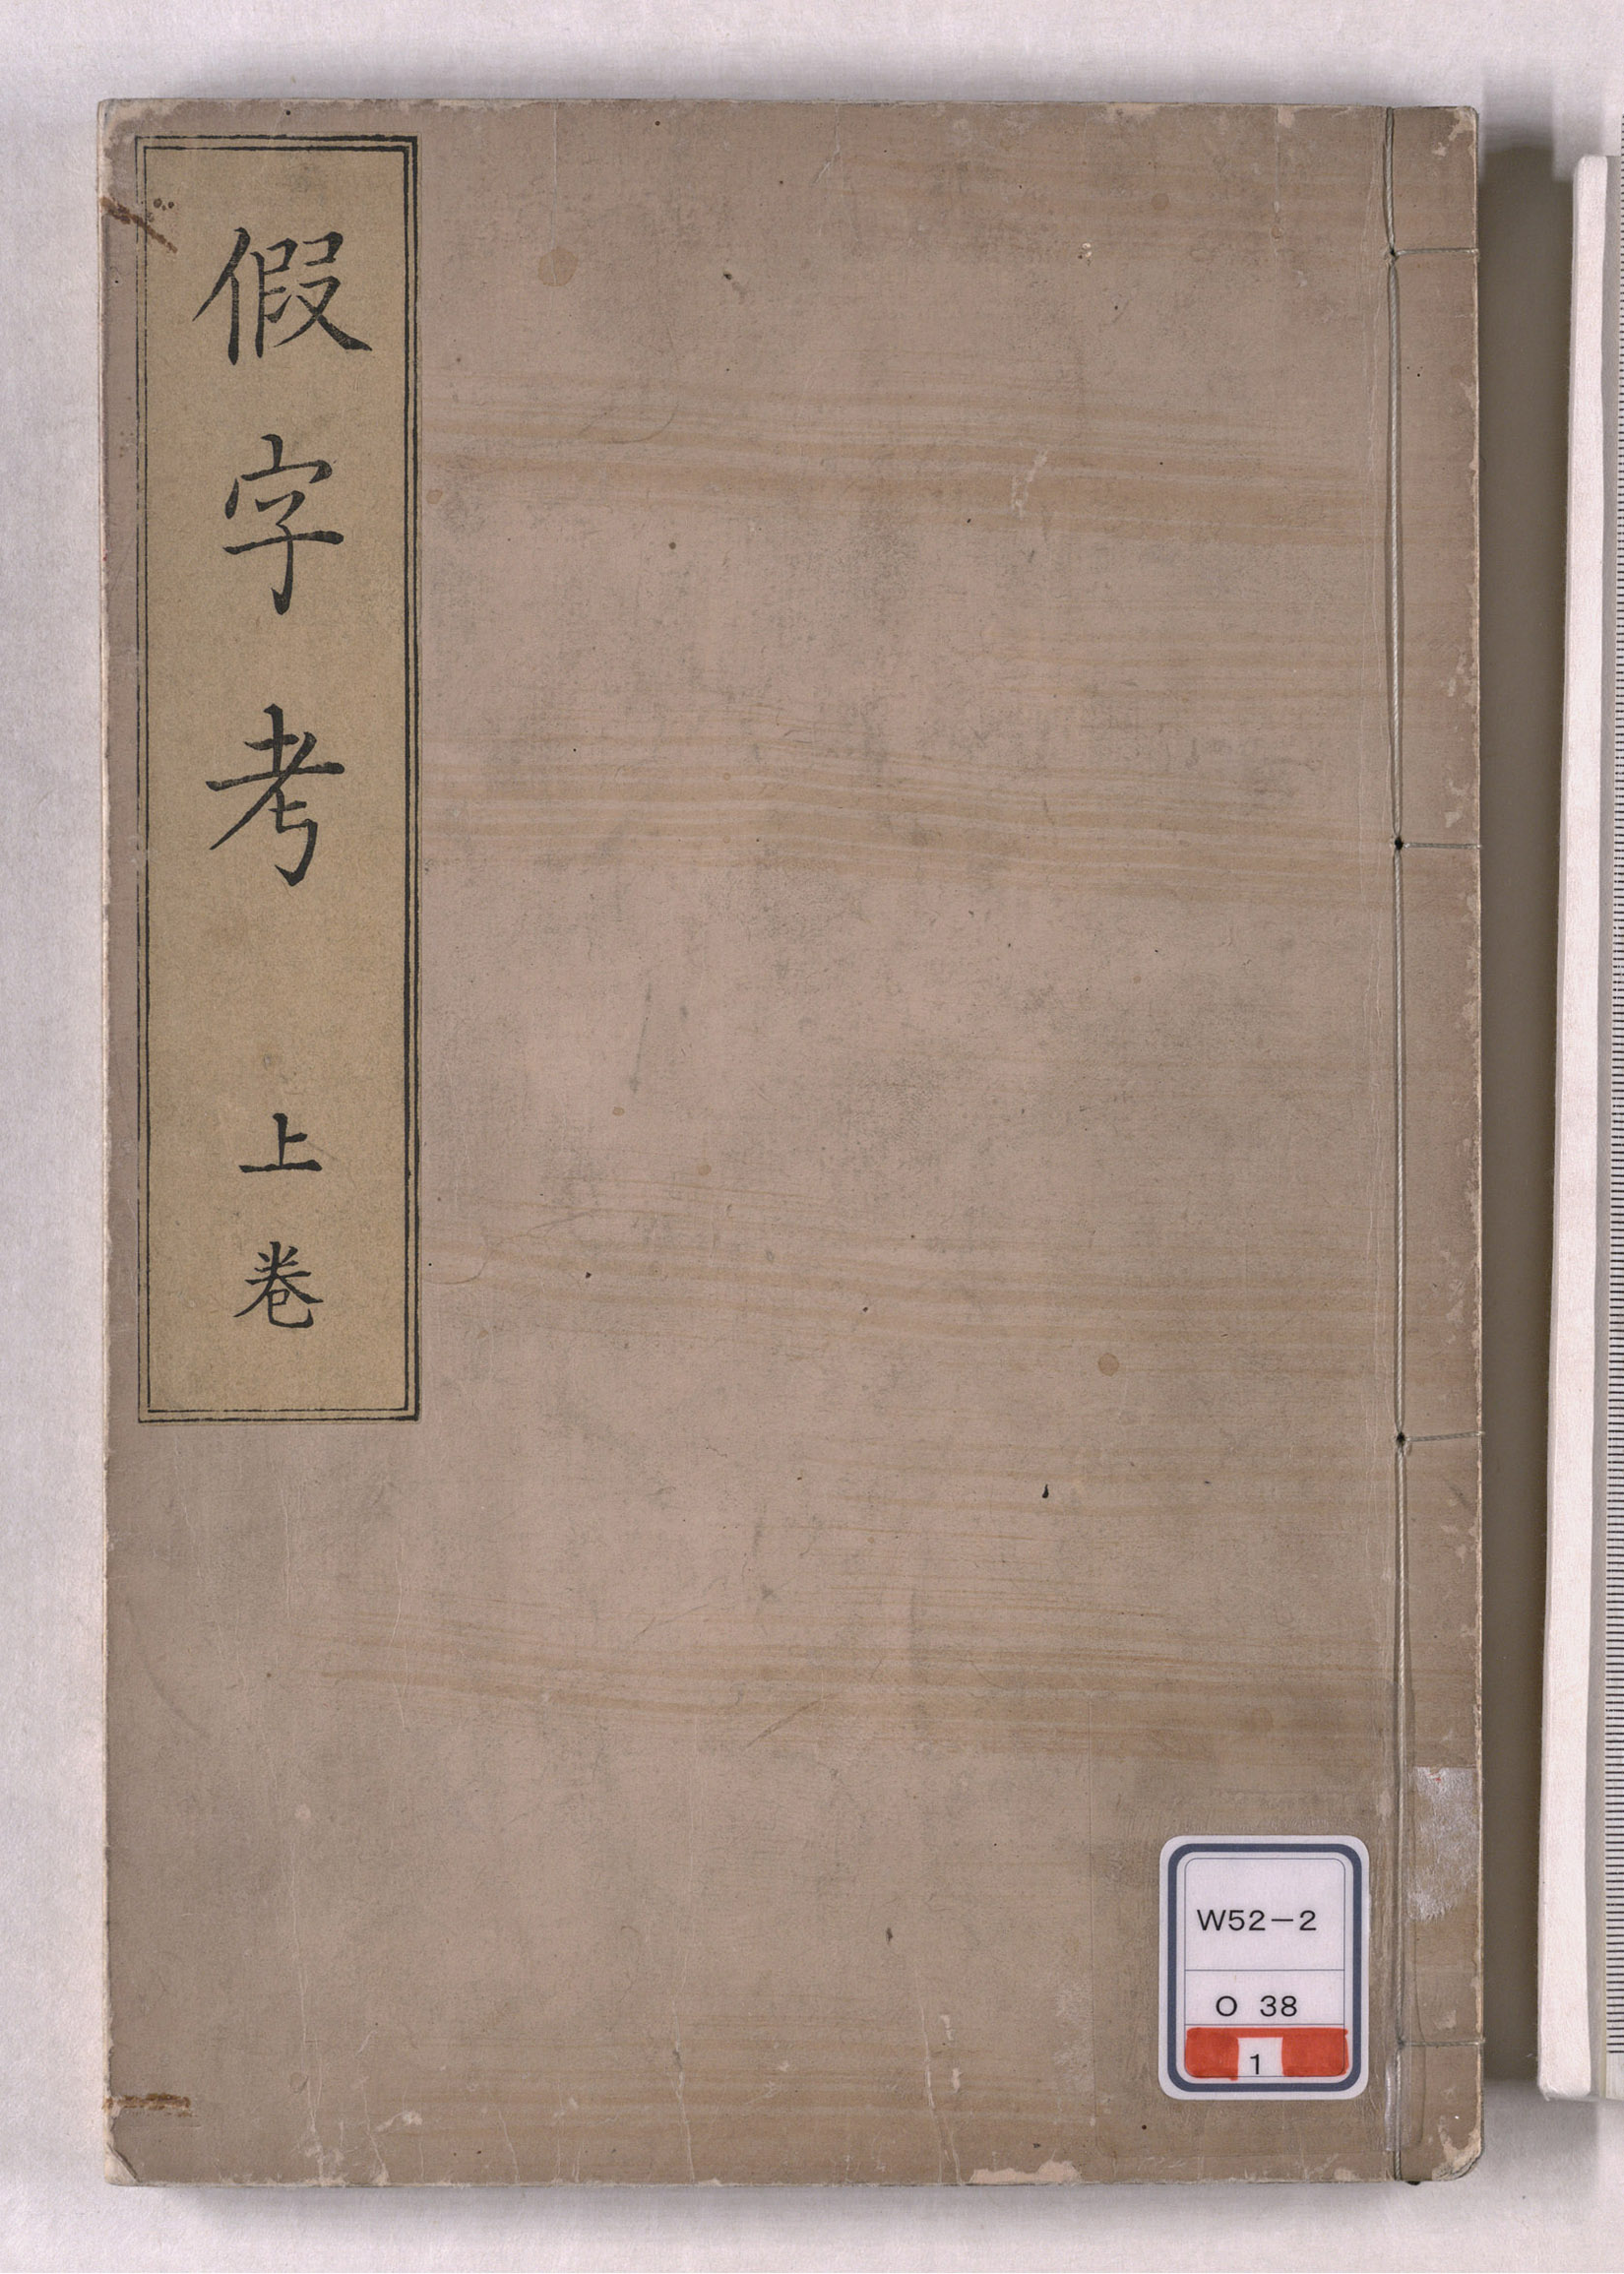 假字考 上卷
W52-2
O 38
1